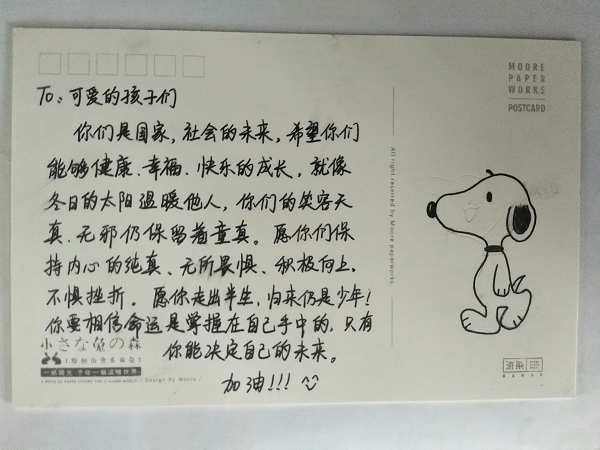 MOORE
PAPER
WORKS
POSTCARD
To：可爱的孩子们
你们是国家，社会的未来，希望你们
能够健康、幸福、快乐的成长，就像
冬日的太阳温暖他人，你们的笑容天
真、无邪仍保留着童真。愿你们保
持内心的纯真、无所畏惧、积极向上，
不惧挫折。愿你走出半生，归来仍是少年！
你要相信命运是掌握在自己手中的，只有
你能决定自己的未来。
加油!!!
All right reserved by Moore paperworks.
小さな兔の森
/ Design By Moore /